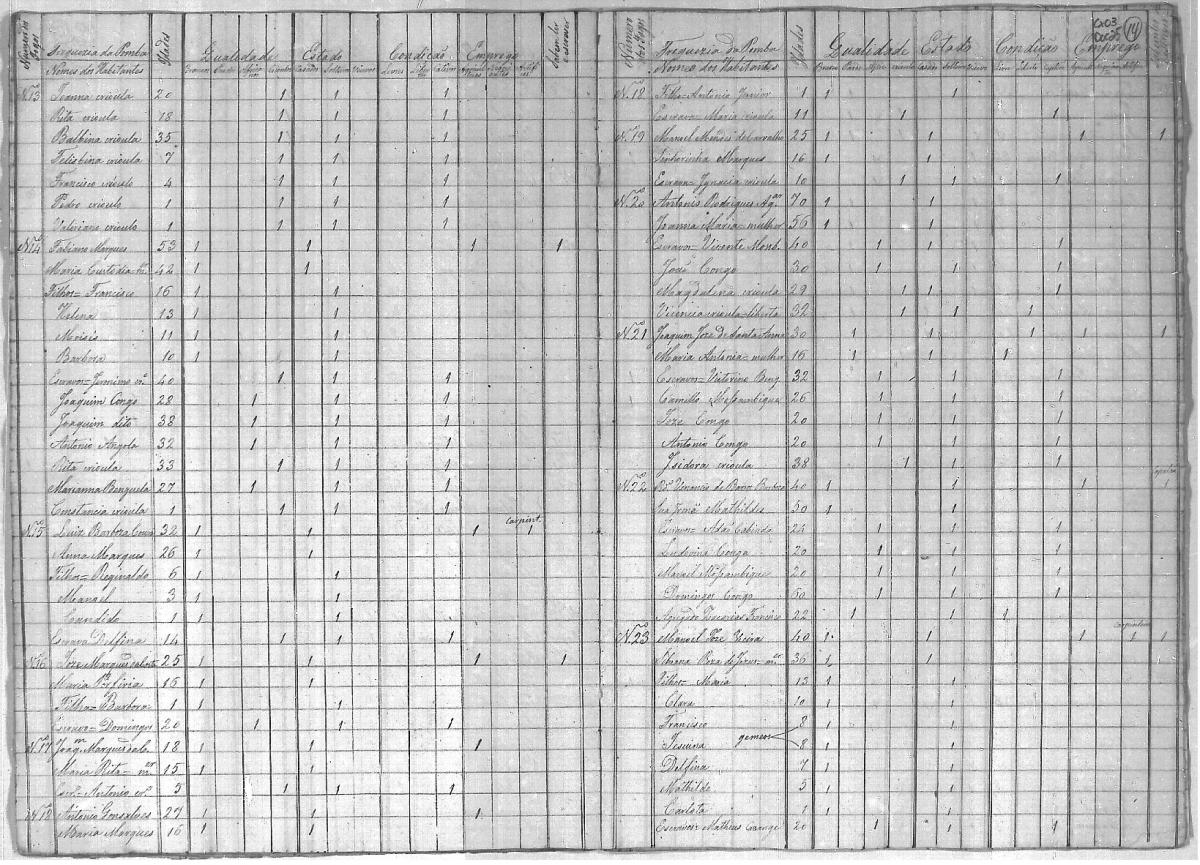 Freguezia da Pomba
Nomes dos Habitantes Idades Qualidade Estado Condição Emprego Saber ler escrever
Nº 13 Joanna crioula 20 1 1 1
Rita crioula 18 1 1 1
Balbina crioula 35 1 1 1
Felisbina crioula 7 1 1 1
Francisco crioulo 4 1 1 1
Pedro crioulo 1 1 1 1
Valeriano crioulo 1 1 1 1
Nº 14 Fabiano Marques 53 1 1 1 1
Maria Custodia 42 1 1
Filhos= Francisco 16 1 1
Helena 13 1 1
Moisés 11 1 1
Barbora 10 1 1
Escravos= 40 1 1 1
Joaquim Congo 28 1 1 1
Joaquim dito 38 1 1 1
Antonio Angola 32 1 1 1
Rita crioula 33 1 1 1
Marianna Benguela 27 1 1 1
Constancia crioula 1 1 1 1
carpint.
Nº 15 Luiz Barboza 32 1 1 1 1
Anna Marques 26 1 1
Filhos= Reginaldo 6 1 1
Manoel 3 1 1
Candido 1 1 1
Escrava Delfina 14 1 1 1
Nº 16 Joze Marques 25 1 1 1 1
Maria 16 1 1
Filha= Barbora 1 1 1
Escravo= Domingos 20 1 1 1
Nº 17 Joaqm Marques 18 1 1 1
Maria Rita= mer 15 1 1
Antonio 5 1 1 1
Nº 18 Antonio Gonsalves 27 1 1 1
Maria Marques 16 1 1
14
Freguezia da Pomba
Nomes dos Habitantes Idades Qualidade Estado Condição Emprego
Nº 18 Filho= Antonio Junior 1 1 1
Escrava= Maria crioula 11 1 1
Nº 19 Manoel Mendes de Carvalho 25 1 1 1 1
Senhorinha Marques 16 1 1
Escrava= Ignacia crioula 10 1 1 1
Nº 20 Antonio Rodrigues 70 1 1
Joanna Maria= mulher 56 1 1
Escravos= Vicente Monb. 40 1 1 1
Jozé Congo 30 1 1 1
Magdalena crioula 29 1 1 1
Vicencia crioula=liberta 32 1 1 1
Nº 21 Joaquim Joze de Santa Anna 30 1 1 1 1 1
Maria Antonia= mulher 16 1 1 1
Escravos= Victorino Beng. 32 1 1 1
Camillo Mossambique 26 1 1 1
Joze Congo 20 1 1 1
Antonio Congo 20 1 1 1
Isidora crioula 38 1 1 1
Nº 22 Barboza 40 1 1 1 1
Sua Irmã Mathildes 50 1 1
Escravos= Adão Cabinda 24 1 1 1
Ludovina Conga 20 1 1 1
Manoel Mossambique 20 1 1 1
Domingos Congo 60 1 1 1
Francisco 22 1 1 1
carpinteiro
Nº 23 Manoel Joze Vieira 40 1 1 1 1 1
Roza de Jezus= mer 36 1 1
Filhos= Maria 13 1 1
Clara 10 1 1
Francisco 8 1 1
Jesuina gemeos 8 1 1
Delfina 7 1 1
Mathilde 5 1 1
Carlota 1 1 1
Escravos= Matheus 20 1 1 1